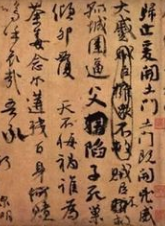 歸止爰開土門土門既開凶威
大蹙賊臣不救
孤城圍逼父陷子死巢
傾卵覆天不悔禍誰為
荼毒念爾遘殘百身何贖
嗚乎哀哉吾承